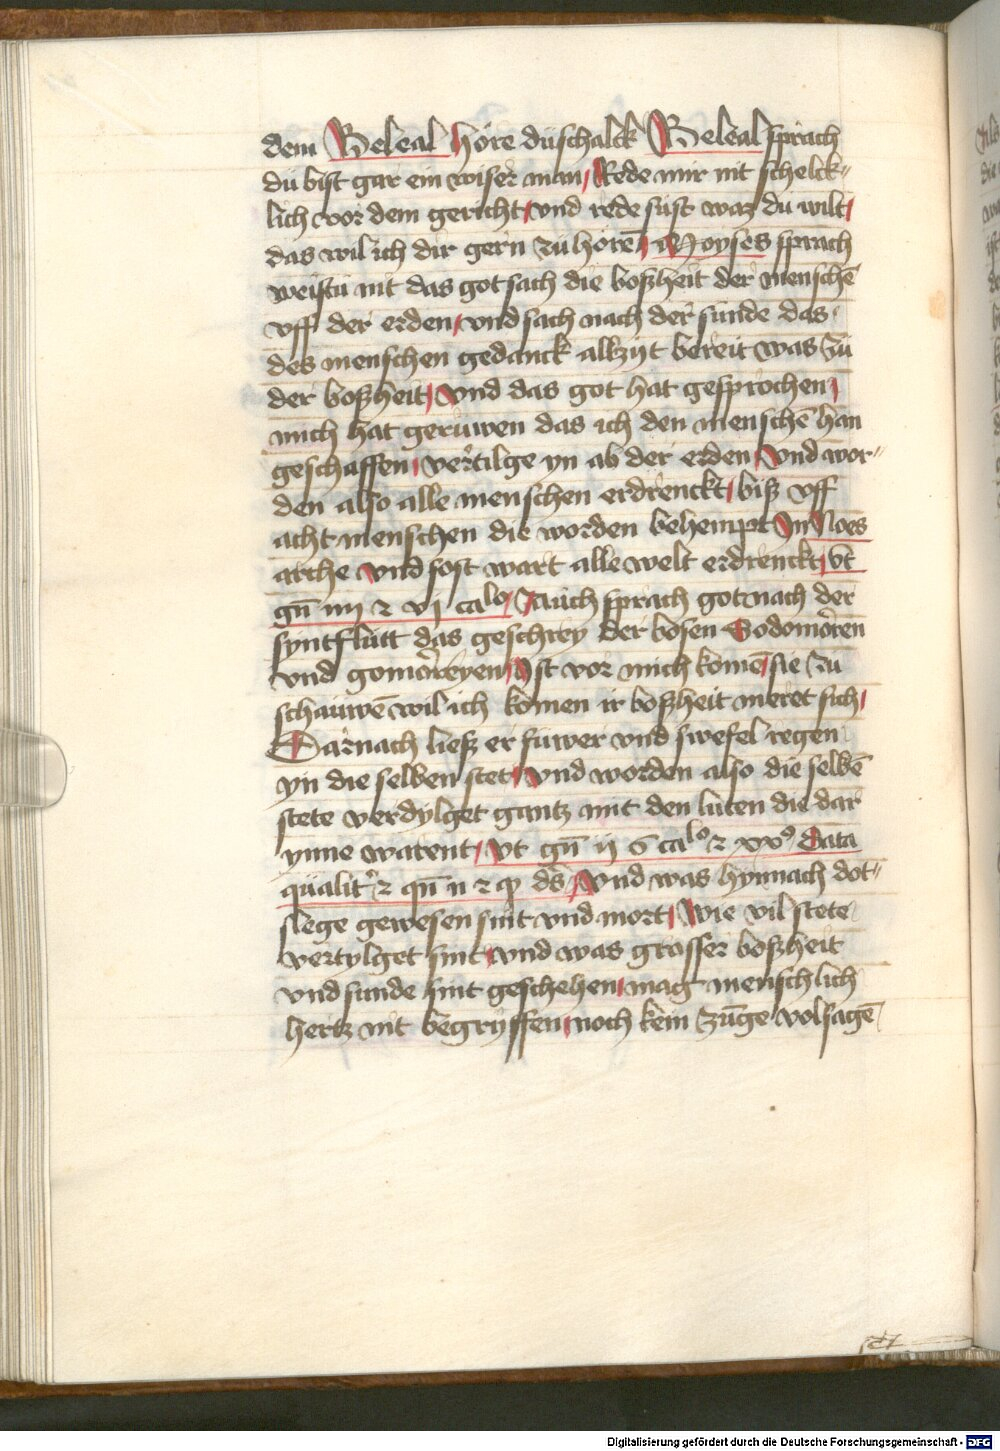 dem Beleal hore du schalck Beleal sprach
du bist gar ein wiser man / Rede mir nit schelck-
lich vor dem gericht / vnd rede sust waz du wilt /
das wil ich dir gern zu horē / Moyses sprach
weistu nit das got sach die boßheit der menschē
vff der erden / vnd sach nach der sunde das
des menschen gedanck allzijt bereit was zu
der boßheit / Vnd das got hat gesprochen /
mich hat geruwen das ich den menschē han
geschaffen / vertilge yn ab der erden / Vnd wor-
den also alle menschen erdrenckt / biß vff
acht menschen die worden behempt In Noes
arche vnd sost wart alle welt erdrenckt / vt
gn̄ iiij ⁊ vj calo / Auch sprach got nach der
syntflutt das geschrey der bosen Sodomoren
vnd gomorreyen / Ist vor mich komē / sie zu
schauwē wil ich komen ir boßheit meret sich /
Darnach ließ er fuwer vnd swefel regen
yn die selben stet / vnd worden also die selbē
stete verdylget gantz mit den luten die dar
ynne warent / Vt gn̄ ij ca lo ⁊ xxo data
qualit ⁊ qn̄ n ⁊ ds / Vnd was hynnach dot-
slege gewesen sint vnd mort / Wie vil stete
vertylget sint / vnd was grosser boßheit
vnd sunde sint geschehen / mag menschlich
hertz nit begryffen / noch kein zūge volsagē
Digitalisierung gefördert durch die Deutsche Forschungsgemeinschaft - DFG